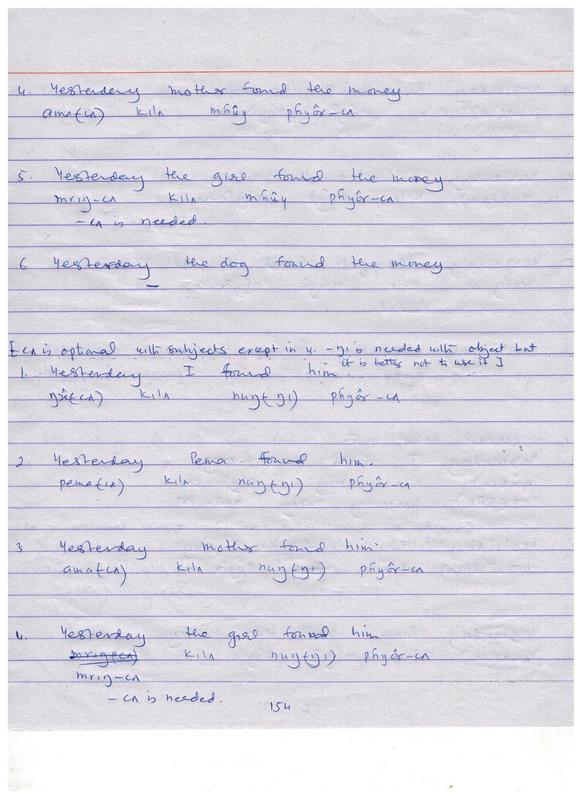 4. Yesterday mother found the money
ama(cʌ) kilʌ mhûy phyôr-cʌ
5. Yesterday the girl found the money
mriŋ-cʌ kilʌ mhûy phyôr-cʌ
-cʌ is needed.
6 Yesterday the dog found the money
[cʌ is optional with subjects except in 4. -ŋi is needed with object but
it is better not to use it]
1. Yesterday I found him
(cʌ) kilʌ nuŋ(ŋi) phyôr-cʌ
2. Yesterday Pema found him.
pema(cʌ) kilʌ nuŋ(ŋi) phyôr-cʌ
3 Yesterday mother found him.
ama(cʌ) kilʌ nuŋ(ŋi) phyôr-cʌ
4. Yesterday the girl found him
kilʌ nuŋ(ŋi) phyôr-cʌ
mriŋ-cʌ
-cʌ is needed.
154